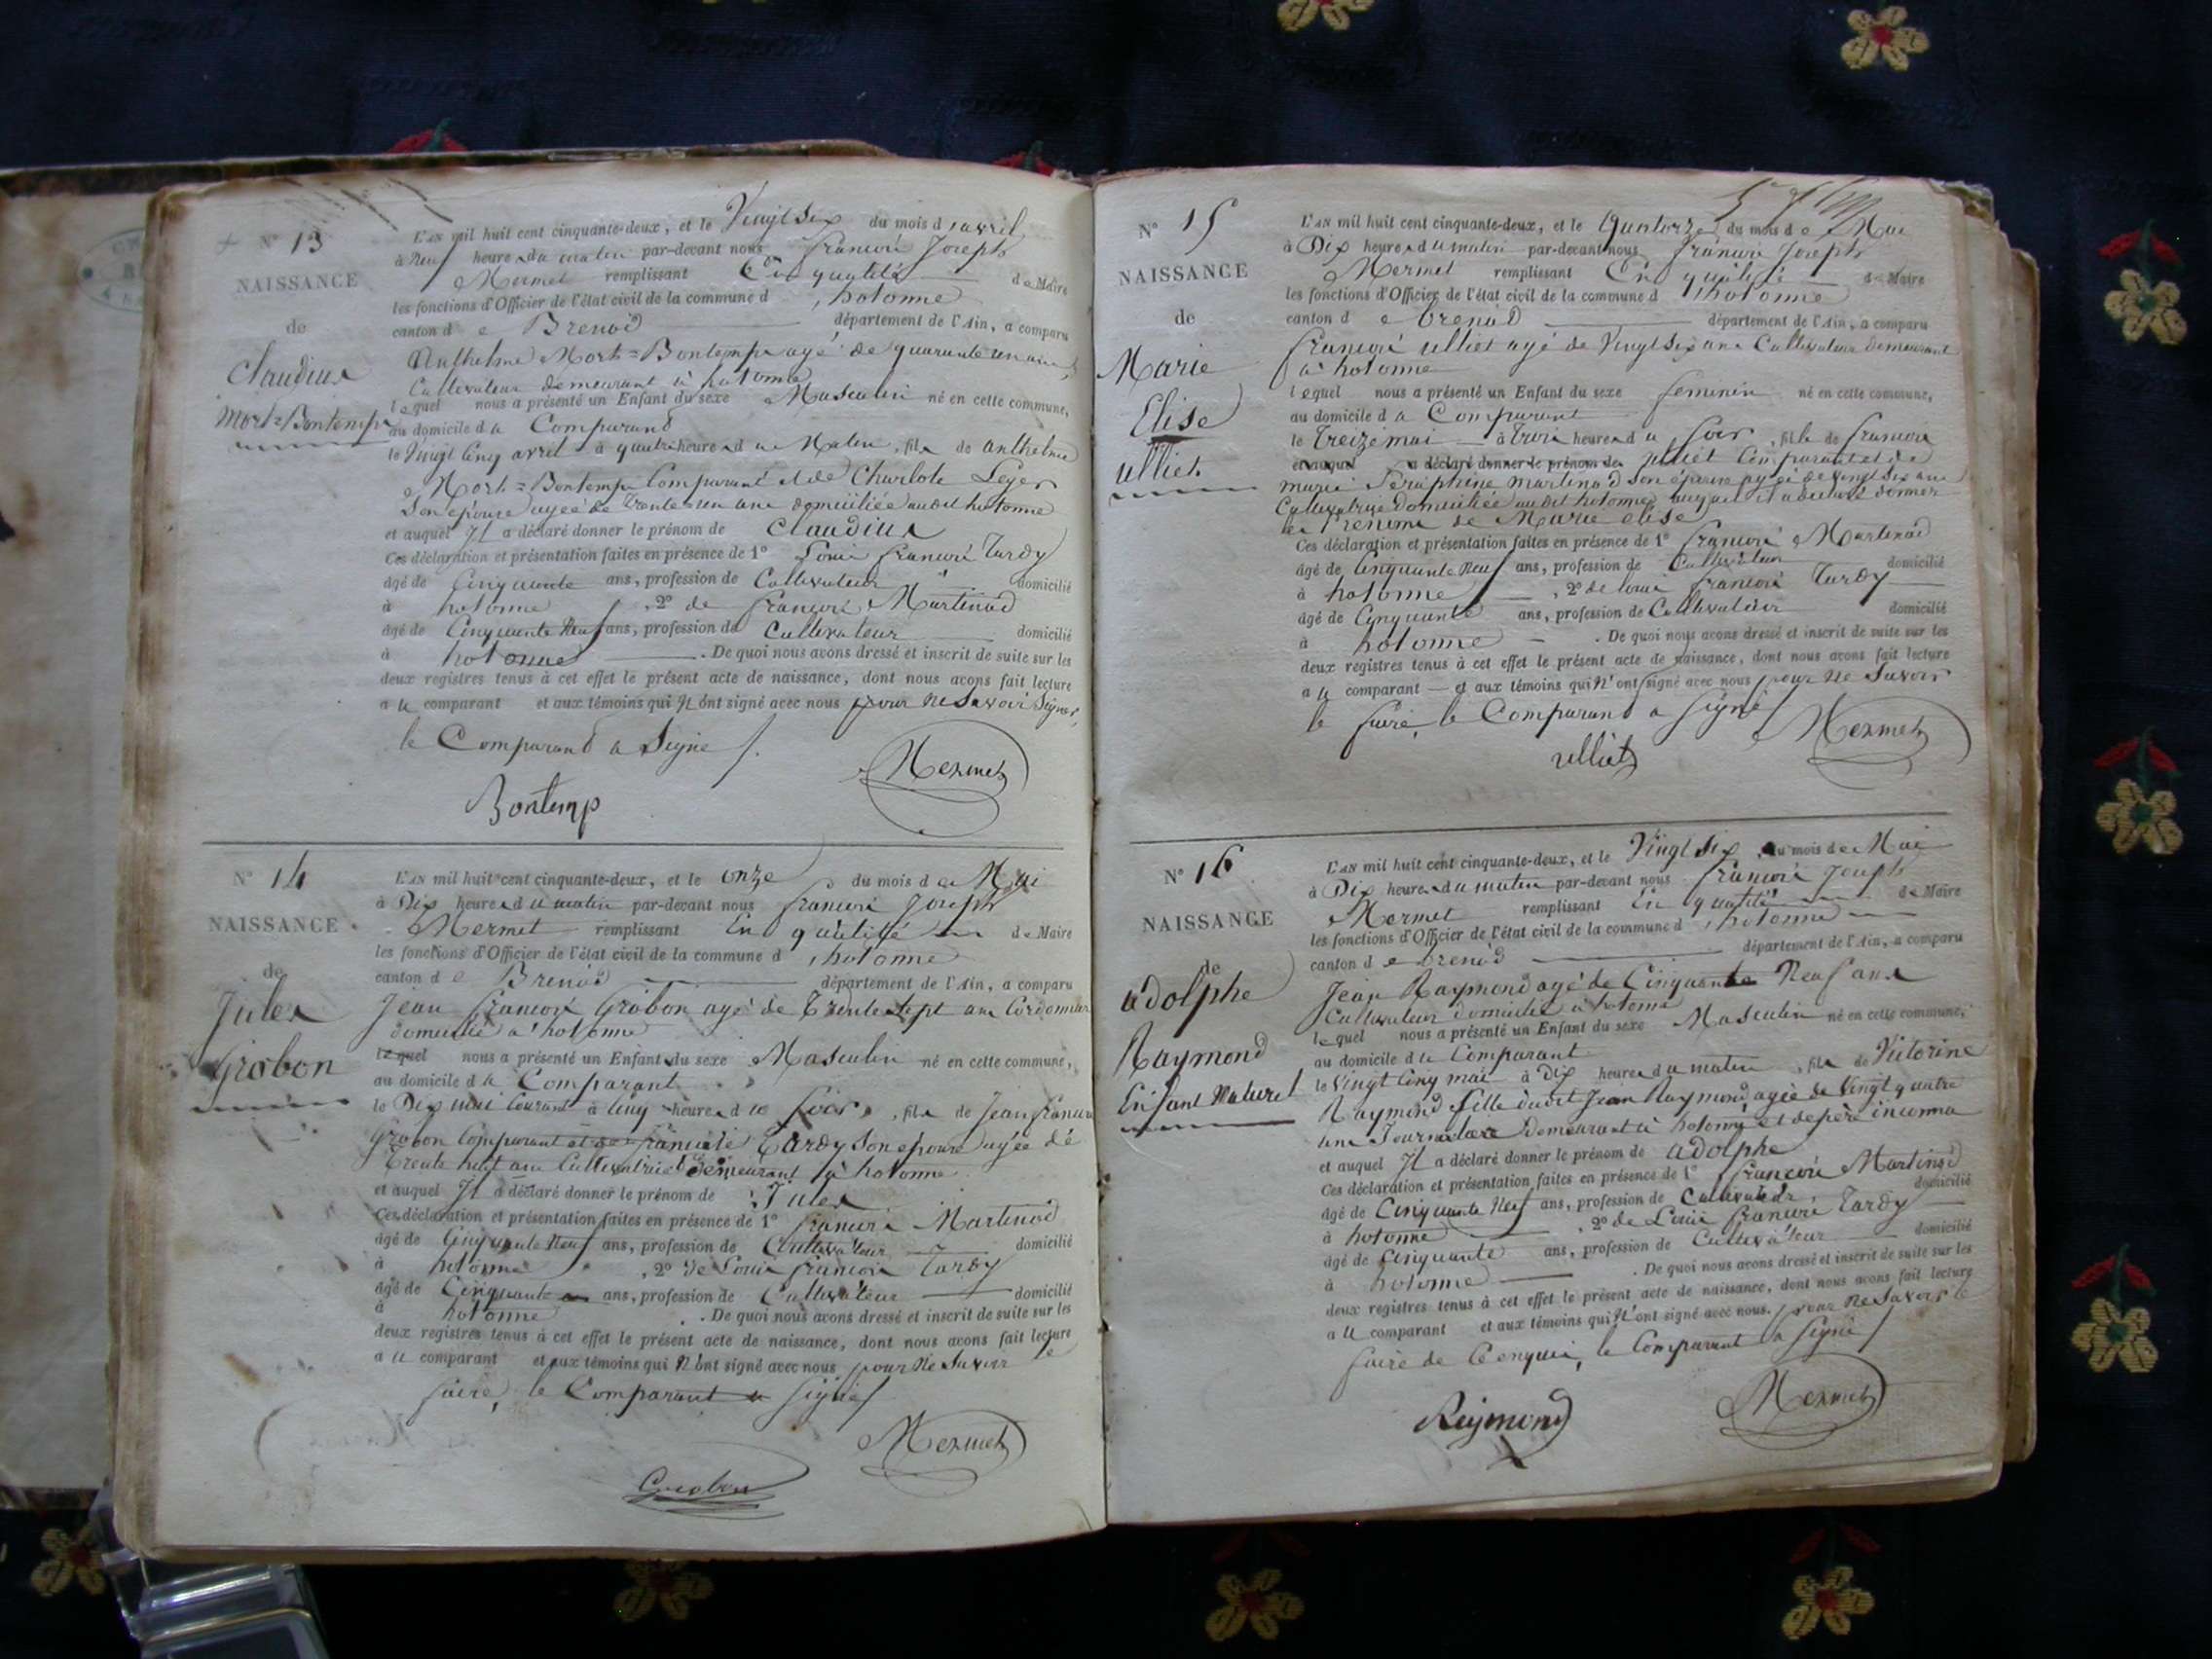 N° 13
NAISSANCE
de
Claudius
Mort=Bontemps
L'AN mil huit cent cinquante-deux, et le Vingt Six du mois d'avril
à neuf heures du matin par-devant nous françois Joseph
Mermet remplissant En qualité de Maire
les fonctions d'Officier de l'état civil de la commune d'hotonne
canton de Brenod département de l'Ain, a comparu
Anthelme Mort=Bontemps agé de quarante un ans
Cultivateur demeurant à hotonne
lequel nous a présenté un Enfant du sexe Masculin né en cette commune,
au domicile du Comparand
le Vingt Cinq avril à quatre heures du Matin, fils de anthelme
Mort=Bontemps Comparant et de Charlote Leger
Son épouse agée de trente un ans domiciliée audit hotonne
et auquel Il a déclaré donner le prénom de Claudius
Ces déclaration et présentation faites en présence de 1° Louis françois Tardy
âgé de Cinquante ans, profession de Cultivateur domicilié
à hotonne, 2° de françois Martinod
âgé de Cinquante Neuf ans, profession de Cultivateur domicilié
à hotonne. De quoi nous avons dressé et inscrit de suite sur les
deux registres tenus à cet effet le présent acte de naissance, dont nous avons fait lecture
au comparant et aux témoins qui N'ont signé avec nous pour Ne Savoir Signer,
le Comparand a Signé
Bontemp
Mermet
N° 14
NAISSANCE
de
Jules
Grobon
L'AN mil huit cent cinquante-deux, et le onze du mois de Mai
à Dix heures du matin par-devant nous françois Joseph
Mermet remplissant En qualité de Maire
les fonctions d'Officier de l'état civil de la commune d'hotonne
canton de Brenod département de l'Ain, a comparu
Jean françois Grobon agé de Trente Sept ans Cordonnier
domicilié a hotonne
lequel nous a présenté un Enfant du sexe Masculin né en cette commune,
au domicile du Comparant
le Dix mai Courant à Cinq heures du Soir, fils de Jean françois
Grobon Comparant et de Tardy Son épouse agée de
trente huit ans Cultivatrice demeurant à hotonne
et auquel Il a déclaré donner le prénom de Jules
Ces déclaration et présentation faites en présence de 1° françois Martinod
âgé de Cinquante Neuf ans, profession de Cultivateur domicilié
à hotonne, 2° de Louis françois Tardy
âgé de Cinquante ans, profession de Cultivateur domicilié
à hotonne. De quoi nous avons dressé et inscrit de suite sur les
deux registres tenus à cet effet le présent acte de naissance, dont nous avons fait lecture
au comparant et aux témoins qui N'ont signé avec nous pour Ne Savoir le
faire, le Comparant a signé
Mermet
Grobon
N° 15
NAISSANCE
de
Marie
Elise
ulliet
L'AN mil huit cent cinquante-deux, et le Quatorze du mois de Mai
à Dix heures du matin par-devant nous françois Joseph
Mermet remplissant En qualité de Maire
les fonctions d'Officier de l'état civil de la commune d'hotonne
canton de brenod département de l'Ain, a comparu
françois ulliet agé de Vingt Six ans Cultivateur demeurant
à hotonne
lequel nous a présenté un Enfant du sexe feminin né en cette commune,
au domicile du Comparant
le treize mai à trois heures du Soir, fille de francois
et auquel a déclaré donner le prénom de ulliet Comparant et de
marie Séraphine martinod son épouse agée de vingt Six ans
Cultivatrice domiciliée audit hotonne, auquel il a déclaré donner
les Prenoms de Marie élise
Ces déclaration et présentation faites en présence de 1° françois Martinod
âgé de Cinquante Neuf ans, profession de Cultivateur domicilié
à hotonne, 2° de Louis françois Tardy
âgé de Cinquante ans, profession de Cultivateur domicilié
à hotonne. De quoi nous avons dressé et inscrit de suite sur les
deux registres tenus à cet effet le présent acte de naissance, dont nous avons fait lecture
au comparant et aux témoins qui N'ont signé avec nous pour Ne Savoir
le faire, le Comparand a signé
Mermet
ulliet
N° 16
NAISSANCE
de
adolphe
Raymond
Enfant Naturel
L'AN mil huit cent cinquante-deux, et le Vingt Six du mois de Mai
à Dix heures du matin par-devant nous françois Joseph
Mermet remplissant En qualité de Maire
les fonctions d'Officier de l'état civil de la commune d'hotonne
canton de brenod département de l'Ain, a comparu
Jean Raymond agé de Cinquante Neuf ans
Cultivateur domicilié à hotonne
lequel nous a présenté un Enfant du sexe Masculin né en cette commune,
au domicile du Comparant
le Vingt Cinq mai à Dix heures du matin, fils de Victorine
Raymond fille dudit Jean Raymond agée de Vingt quatre
ans Journalière demeurant à hotonne et de père inconnu
et auquel Il a déclaré donner le prénom de adolphe
Ces déclaration et présentation faites en présence de 1° françois Martinod
âgé de Cinquante Neuf ans, profession de Cultivateur, domicilié
à hotonne, 2° de Louis françois Tardy
âgé de Cinquante ans, profession de Cultivateur domicilié
à hotonne. De quoi nous avons dressé et inscrit de suite sur les
deux registres tenus à cet effet le présent acte de naissance, dont nous avons fait lecture
au comparant et aux témoins qui N'ont signé avec nous. pour Ne Savoir le
faire de Ce enquis, le Comparant a signé
Raymond
Mermet